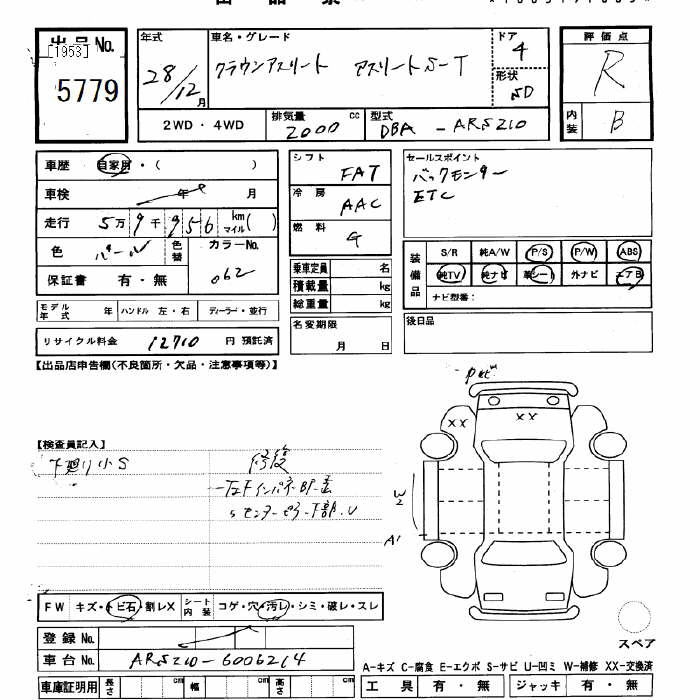 出品No.
[1953]
5779
年式
28/12月
車名・グレード
クラウンアスリート アスリートS-T
ドア
4
形状
SD
評価点
R
内装
B
2WD・4WD
排気量
2000 cc
型式
DBA - ARS210
車歴 自家用・( )
車検 年 月
走行 5万9千956 km マイル( )
色 パール
色替
カラーNo.
062
保証書 有・無
シフト
FAT
冷房
AAC
燃料
G
乗車定員 名
積載量 kg
総重量 kg
セールスポイント
バックモニター
ETC
装備品
S/R 純A/W P/S P/W ABS
純TV 純ナビ 革シート 外ナビ エアB
ナビ型番:
モデル年式 年 ハンドル 左・右 ディーラー・並行
リサイクル料金 12710 円 預託済
名変期限
月 日
後日品
【出品店申告欄(不良箇所・欠品・注意事項等)】
【検査員記入】
下廻り小S
修復
XX
XX
W2
A1
FW キズ・トビ石・割レX
シート内装 コゲ・穴・汚レ・シミ・破レ・スレ
登録No.
車台No. ARS210-6006214
スペア
A-キズ C-腐食 E-エクボ S-サビ U-凹ミ W-補修 XX-交換済
車庫証明用 長さ cm 幅 cm 高さ cm
工具 有・無 ジャッキ 有・無